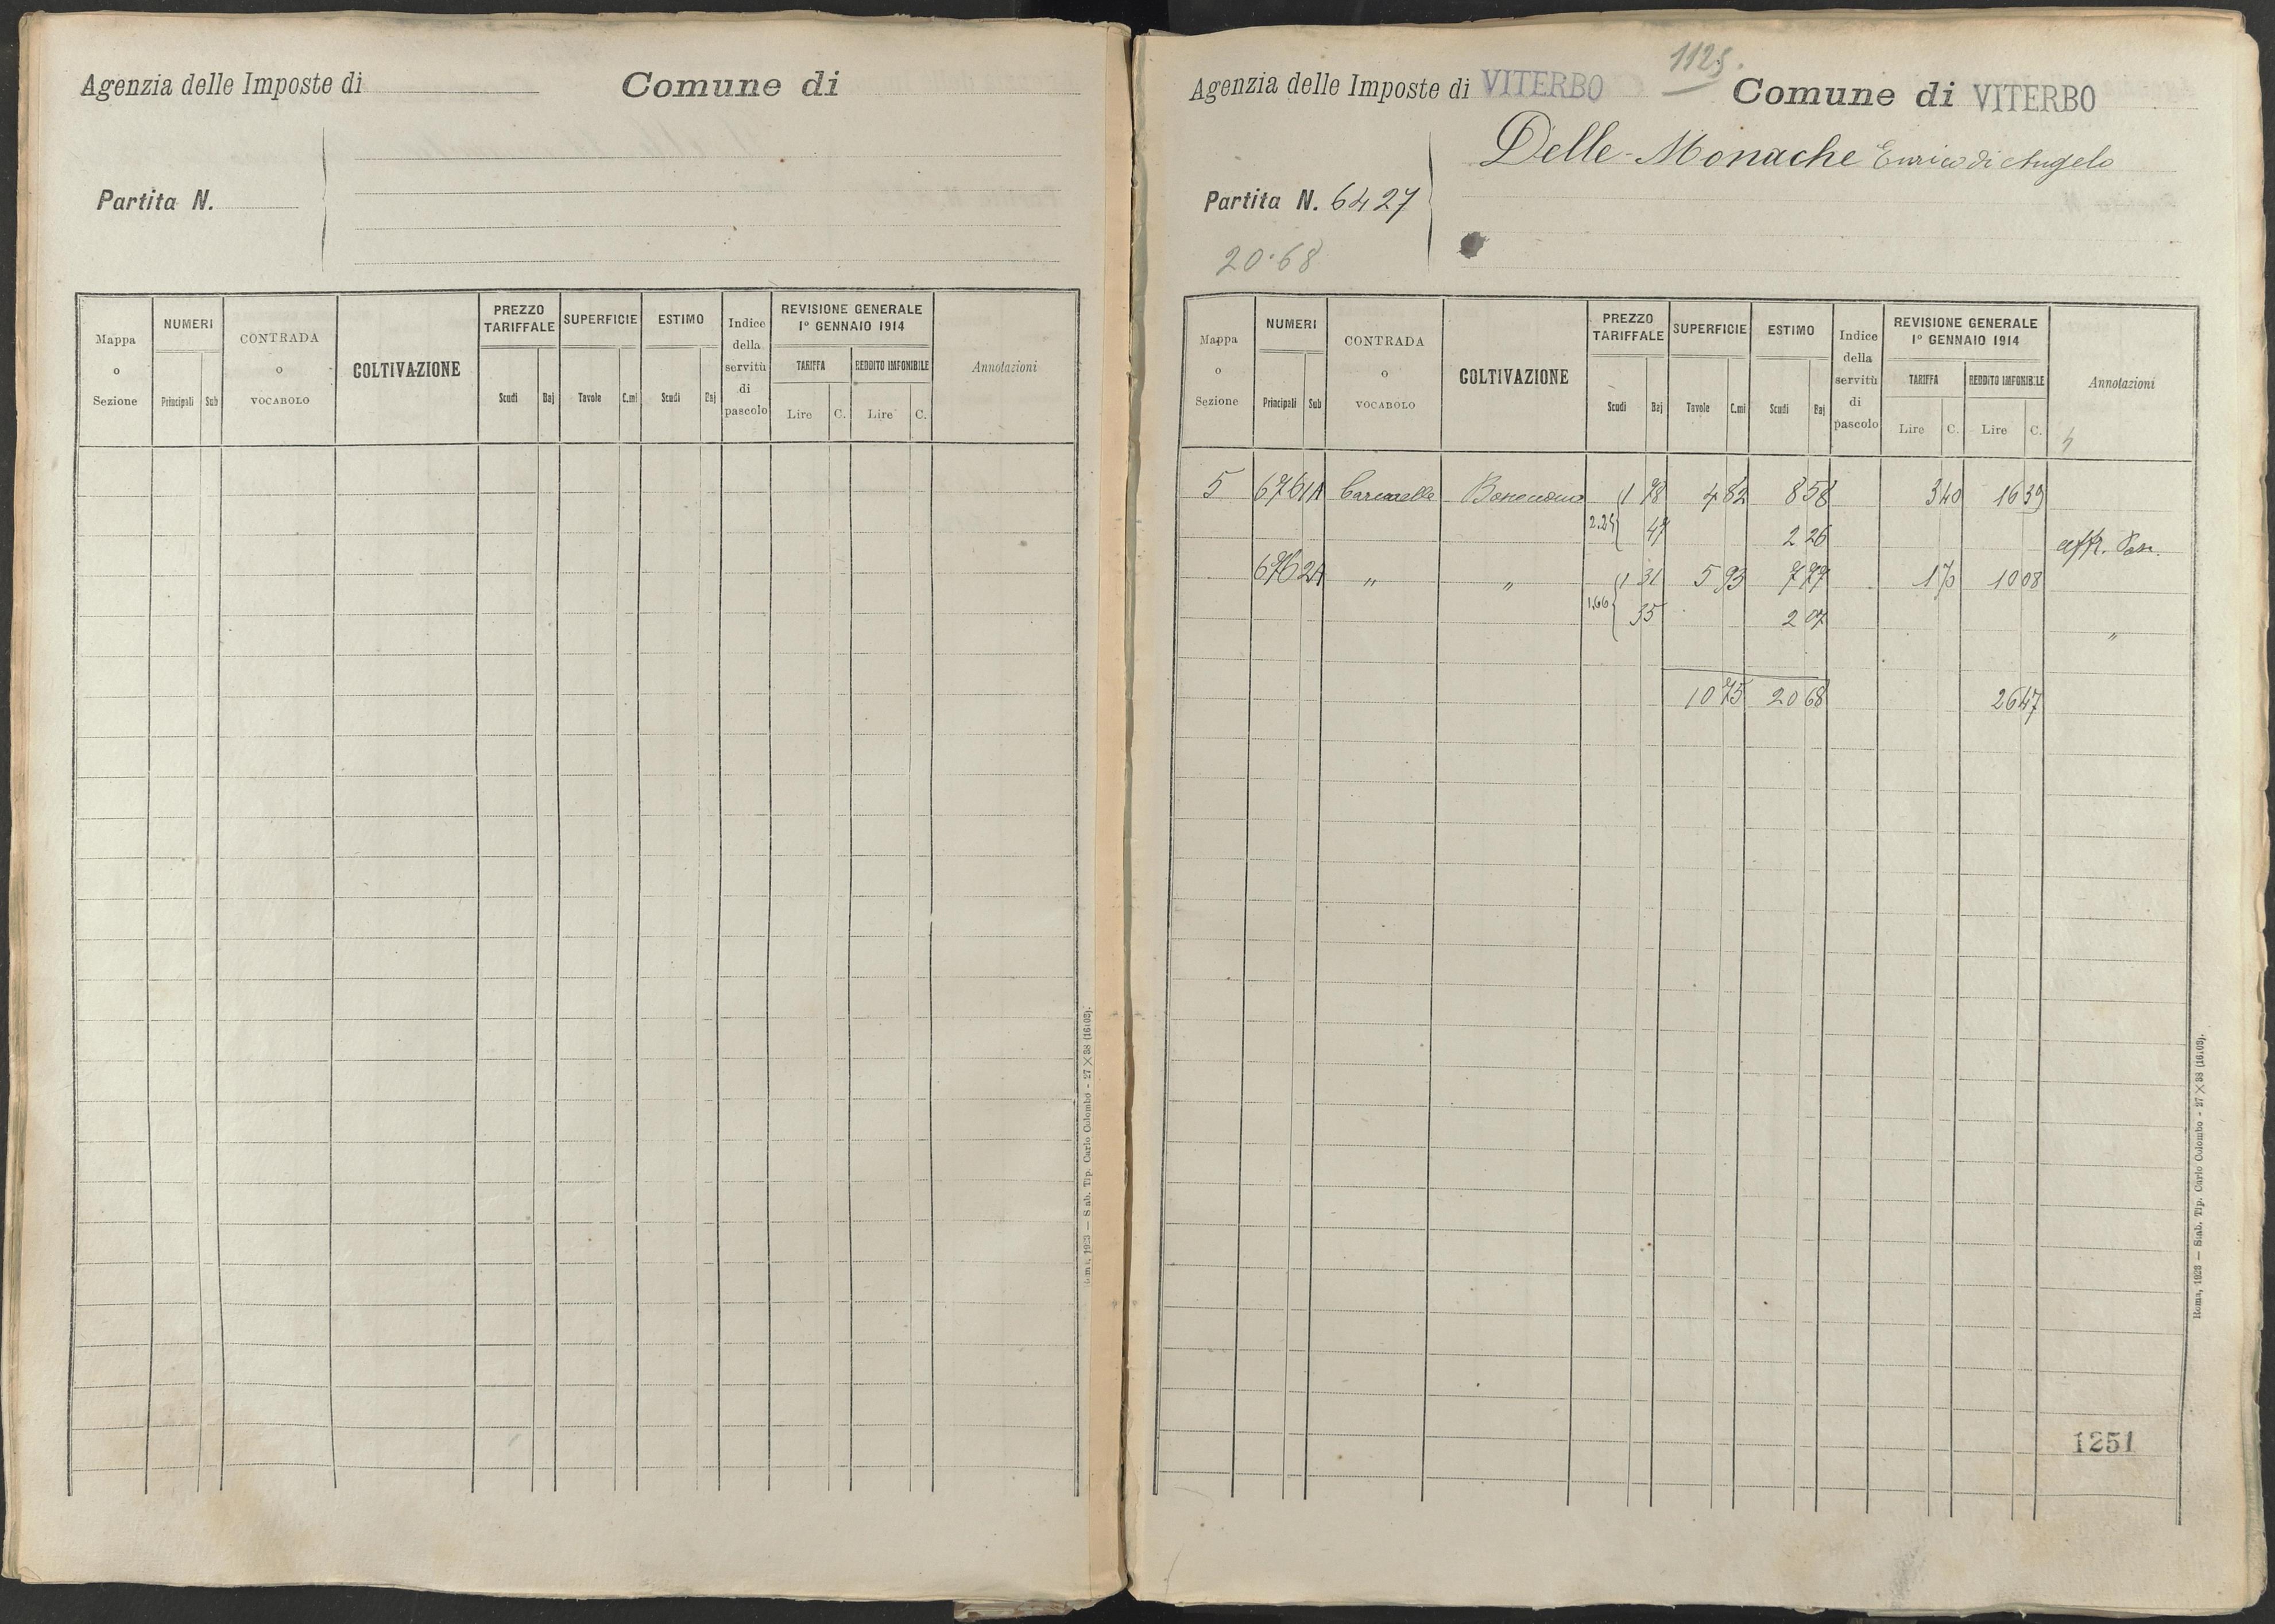 Agenzia delle Imposte di
Comune di
Partita N.
Mappa o Sezione
NUMERI
Principali Sub
CONTRADA O VOCABOLO
COLTIVAZIONE
PREZZO TARIFFALE
Scudi Baj
SUPERFICIE
Tavole C.mi
ESTIMO
Scudi Baj
Indice della servitù di pascolo
REVISIONE GENERALE
1° GENNAIO 1914
TARIFFA
Lire C.
REDDITO IMPONIBILE
Lire C.
Annotazioni
1923 — Stab. Tip. Carlo Colombo - 27×38 (16103).
1125.
Agenzia delle Imposte di VITERBO
Comune di VITERBO
Delle-Monache Enrico di Angelo
Partita N. 6427
20.68
Mappa o Sezione
NUMERI
Principali Sub
CONTRADA O VOCABOLO
COLTIVAZIONE
PREZZO TARIFFALE
Scudi Baj
SUPERFICIE
Tavole C.mi
ESTIMO
Scudi Baj
Indice della servitù di pascolo
REVISIONE GENERALE
1° GENNAIO 1914
TARIFFA
Lire C.
REDDITO IMPONIBILE
Lire C.
Annotazioni
5 6761 A 1 78 4 82 8 58 3 40 16 39
2.25 47 2 26 aff. Pas.
6762 A " " 1 31 5 93 7 77 1 70 10 08
1.66 35 2 07 "
10 75 20 68 26 47
1251
Roma, 1923 — Stab. Tip. Carlo Colombo - 27×38 (16103).